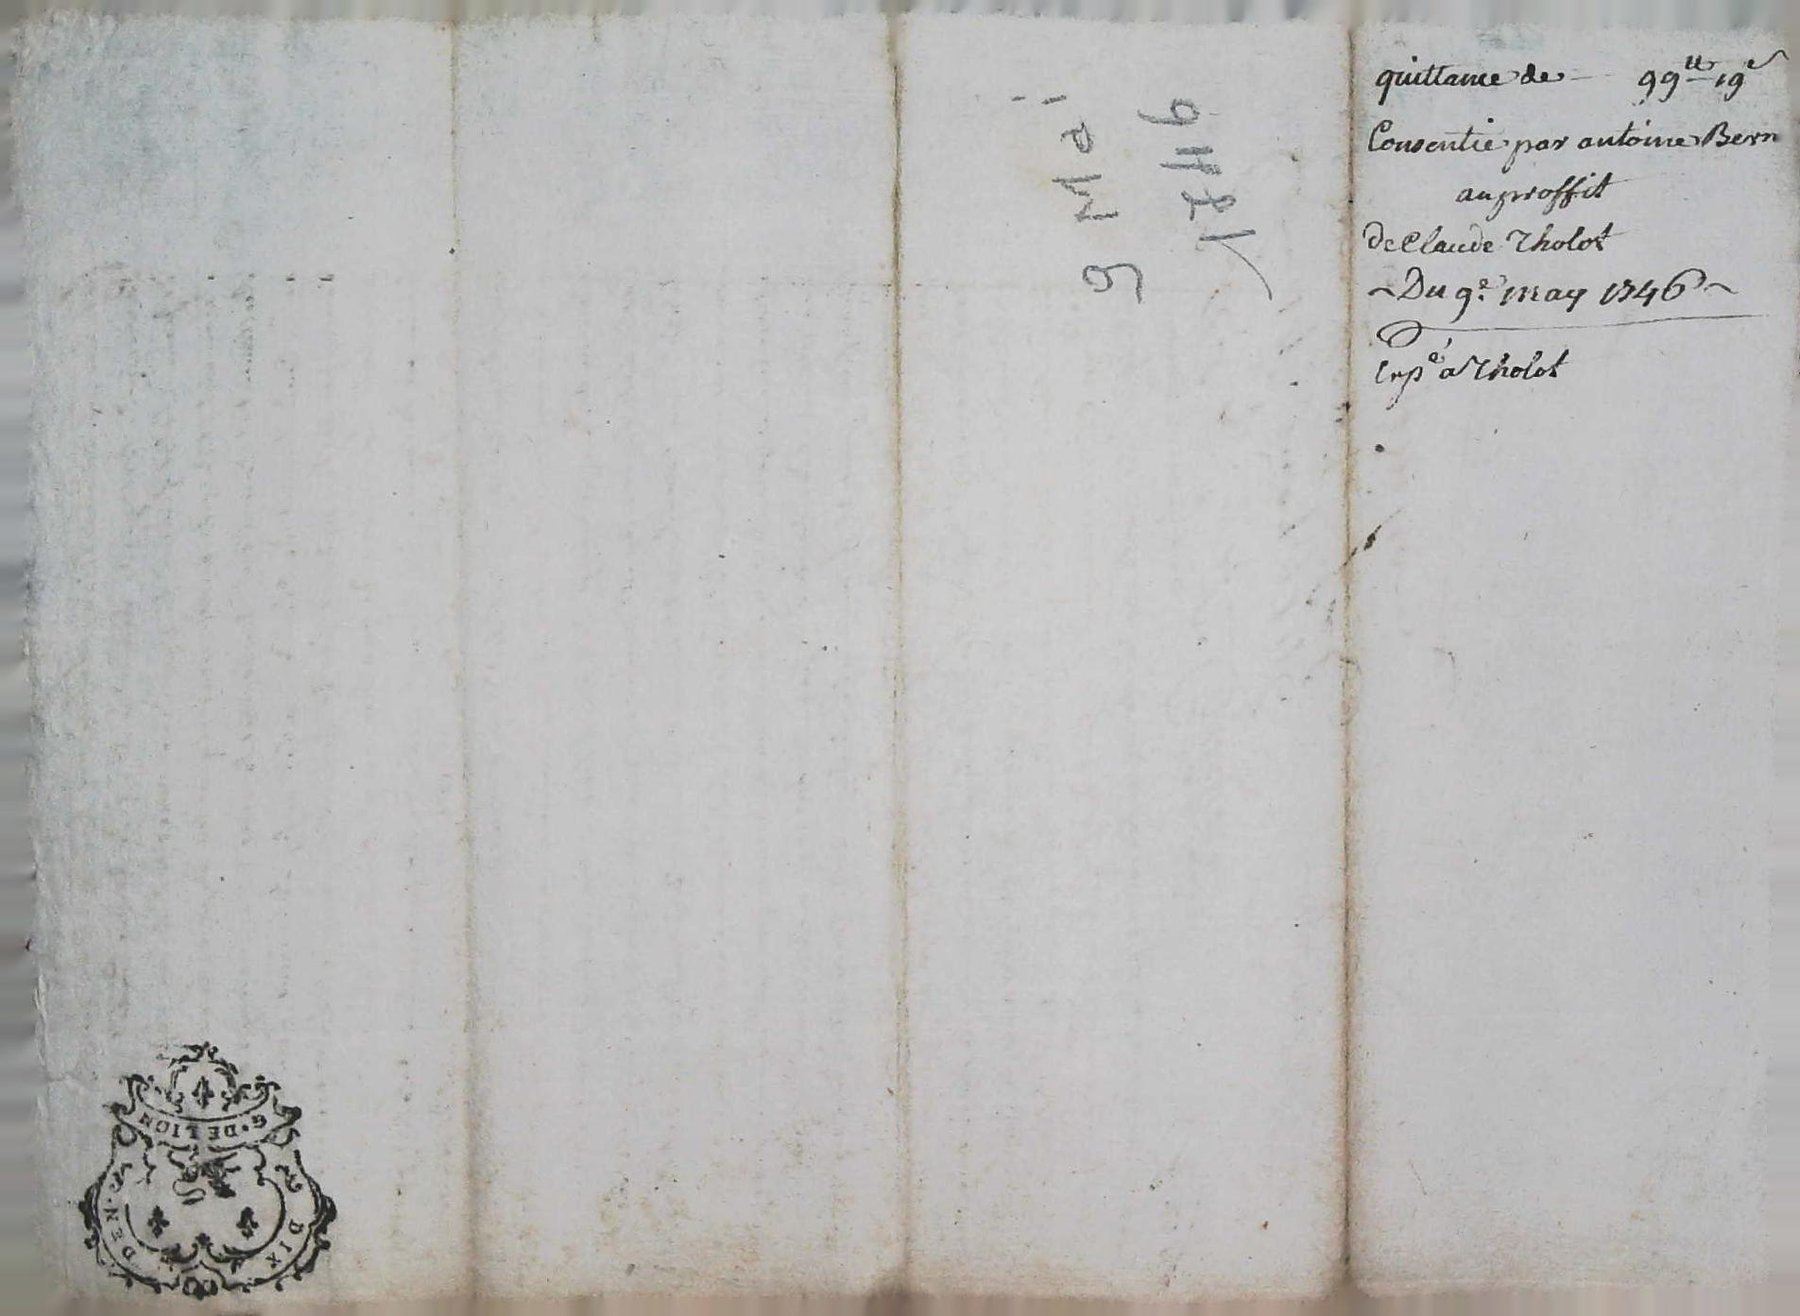 quittance de 99tt 19s
Consentie par antoine Bern
au proffit
de Claude Tholot
~ Du 9e may 1746 ~
Expé a Tholot
9 Mai
1746
G. DE LION
DIX DEN.